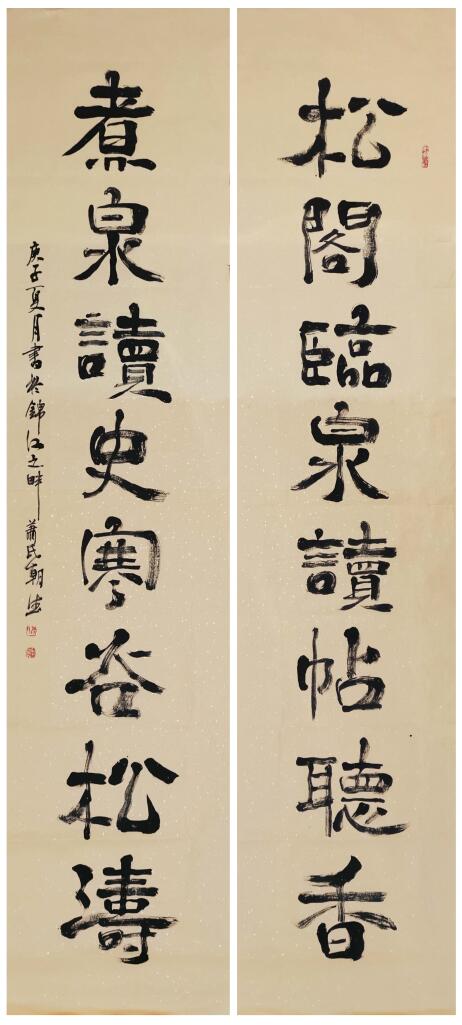 松閣臨泉讀帖聽香
煮泉讀史寒谷松濤
庚子夏月書於錦江之畔蕭氏朝